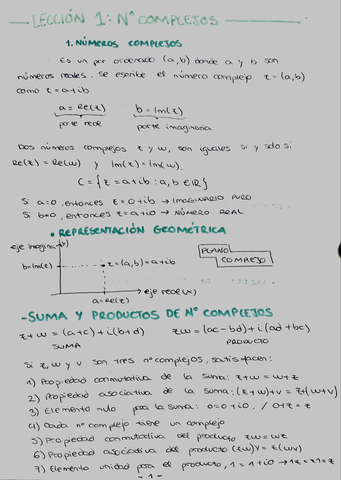 LECCIÓN 1: Nº COMPLEJOS
1. NÚMEROS COMPLEJOS
Es un par ordenado (a,b) donde a y b son
números reales. Se escribe el número complejo z=(a,b)
como z=a+ib
a=Re(z) b=Im(z)
parte real parte imaginaria
Dos números complejos z y w, son iguales si y sólo si
Re(z)=Re(w) y Im(z)=Im(w).
C={z=a+ib : a,b ∈ℝ}
Si a=0, entonces z=0+ib → IMAGINARIO PURO
Si b=0, entonces z=a+i0 → NÚMERO REAL
• REPRESENTACIÓN GEOMÉTRICA
eje imagina(y)
PLANO
COMPLEJO
b=Im(z) z=(a,b)=a+ib
eje real(x)
a=Re(z)
-SUMA Y PRODUCTOS DE Nº COMPLEJOS
z+w=(a+c)+i(b+d) zw=(ac-bd)+i(ad+bc)
SUMA PRODUCTO
Si z,w y v son tres nº complejos, satisfacen:
1) Propiedad conmutativa de la suma: z+w=w+z
2) Propiedad asociativa de la suma: (z+w)+v=z+(w+v)
3) Elemento nulo para la suma: 0=0+i0, / 0+z=z
4) Cada nº complejo tiene un complejo
5) Propiedad conmutativa del producto zw=wz
6) Propiedad asociativa del producto (zw)v=z(wv)
7) Elemento unidad para el producto, 1=1+i0 → 1z=z1=z
-1-